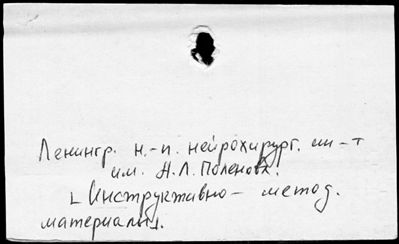 Ленингр. н.-п. нейрохирург. ин-т
им. А.Л. Поленова.
Инструктивно- метод.
материалы.